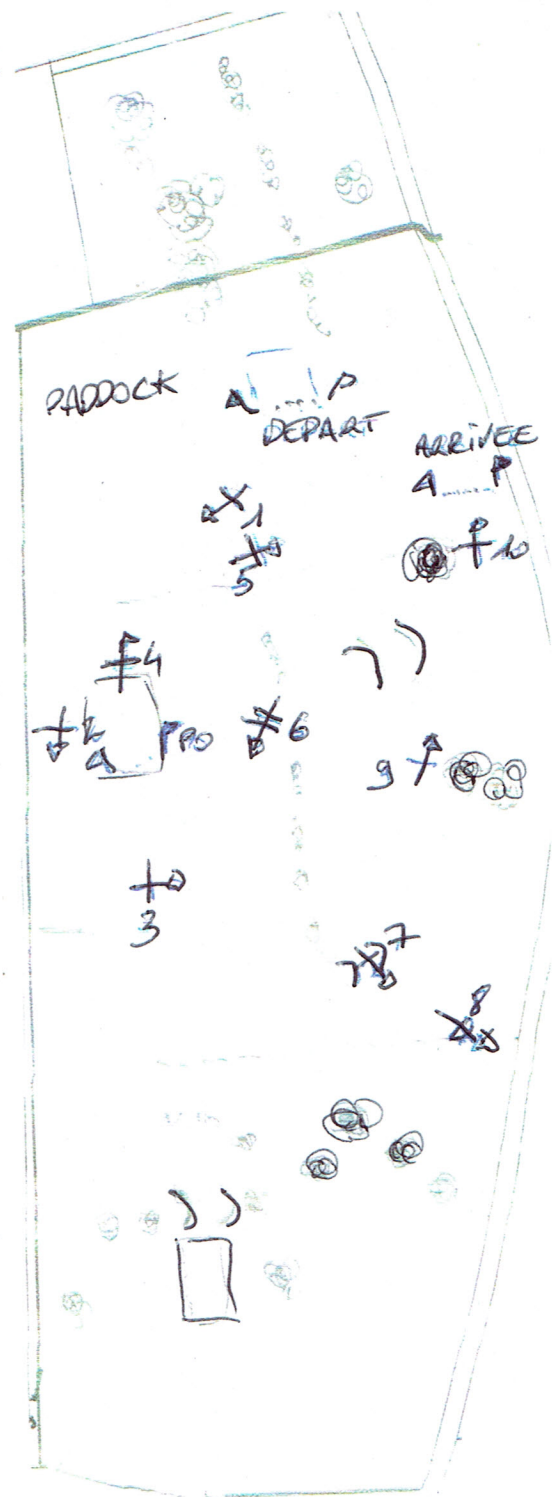 PADDOCK
A P
DEPART
ARRIVEE
A P
1
5
10
4
2
A
PRO
6
9
3
7
8